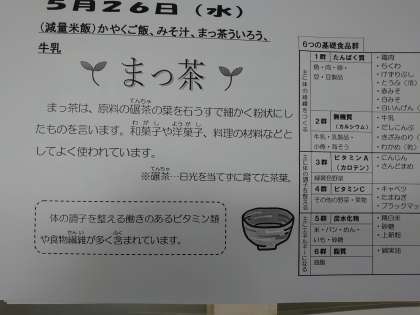 5月26日（水）
（減量米飯）かやくご飯、みそ汁、まっ茶ういろう、
牛乳
まっ茶
まっ茶は、原料の碾茶の葉を石うすで細かく粉状にし
てんちゃ
たものを言います。和菓子や洋菓子、料理の材料などと
わがし
ようがし
してよく使われています。
※碾茶…日光を当てずに育てた茶葉。
てんちゃ
体の調子を整える働きのあるビタミン類
や食物繊維が多く含まれています。
せんい
ふく
6つの基礎食品群
1群 たんぱく質
魚・肉・卵・
豆・豆製品
・鶏肉
・ちくわ
・けずりぶし
・赤みそ
・白みそ
2群 無機質
（カルシウム）
牛乳・乳製品・
小魚・海そう
・牛乳
・だしこんぶ
・わかめ（乾）
3群 ビタミンA
（カロテン）
緑黄色野菜
・にんじん
・さんどまめ
4群 ビタミンC
その他の野菜・果物
・キャベツ
・たまねぎ
5群 炭水化物
米・パン・めん・
いも・砂糖
・精白米
・砂糖
・上新粉
6群 脂質
油脂